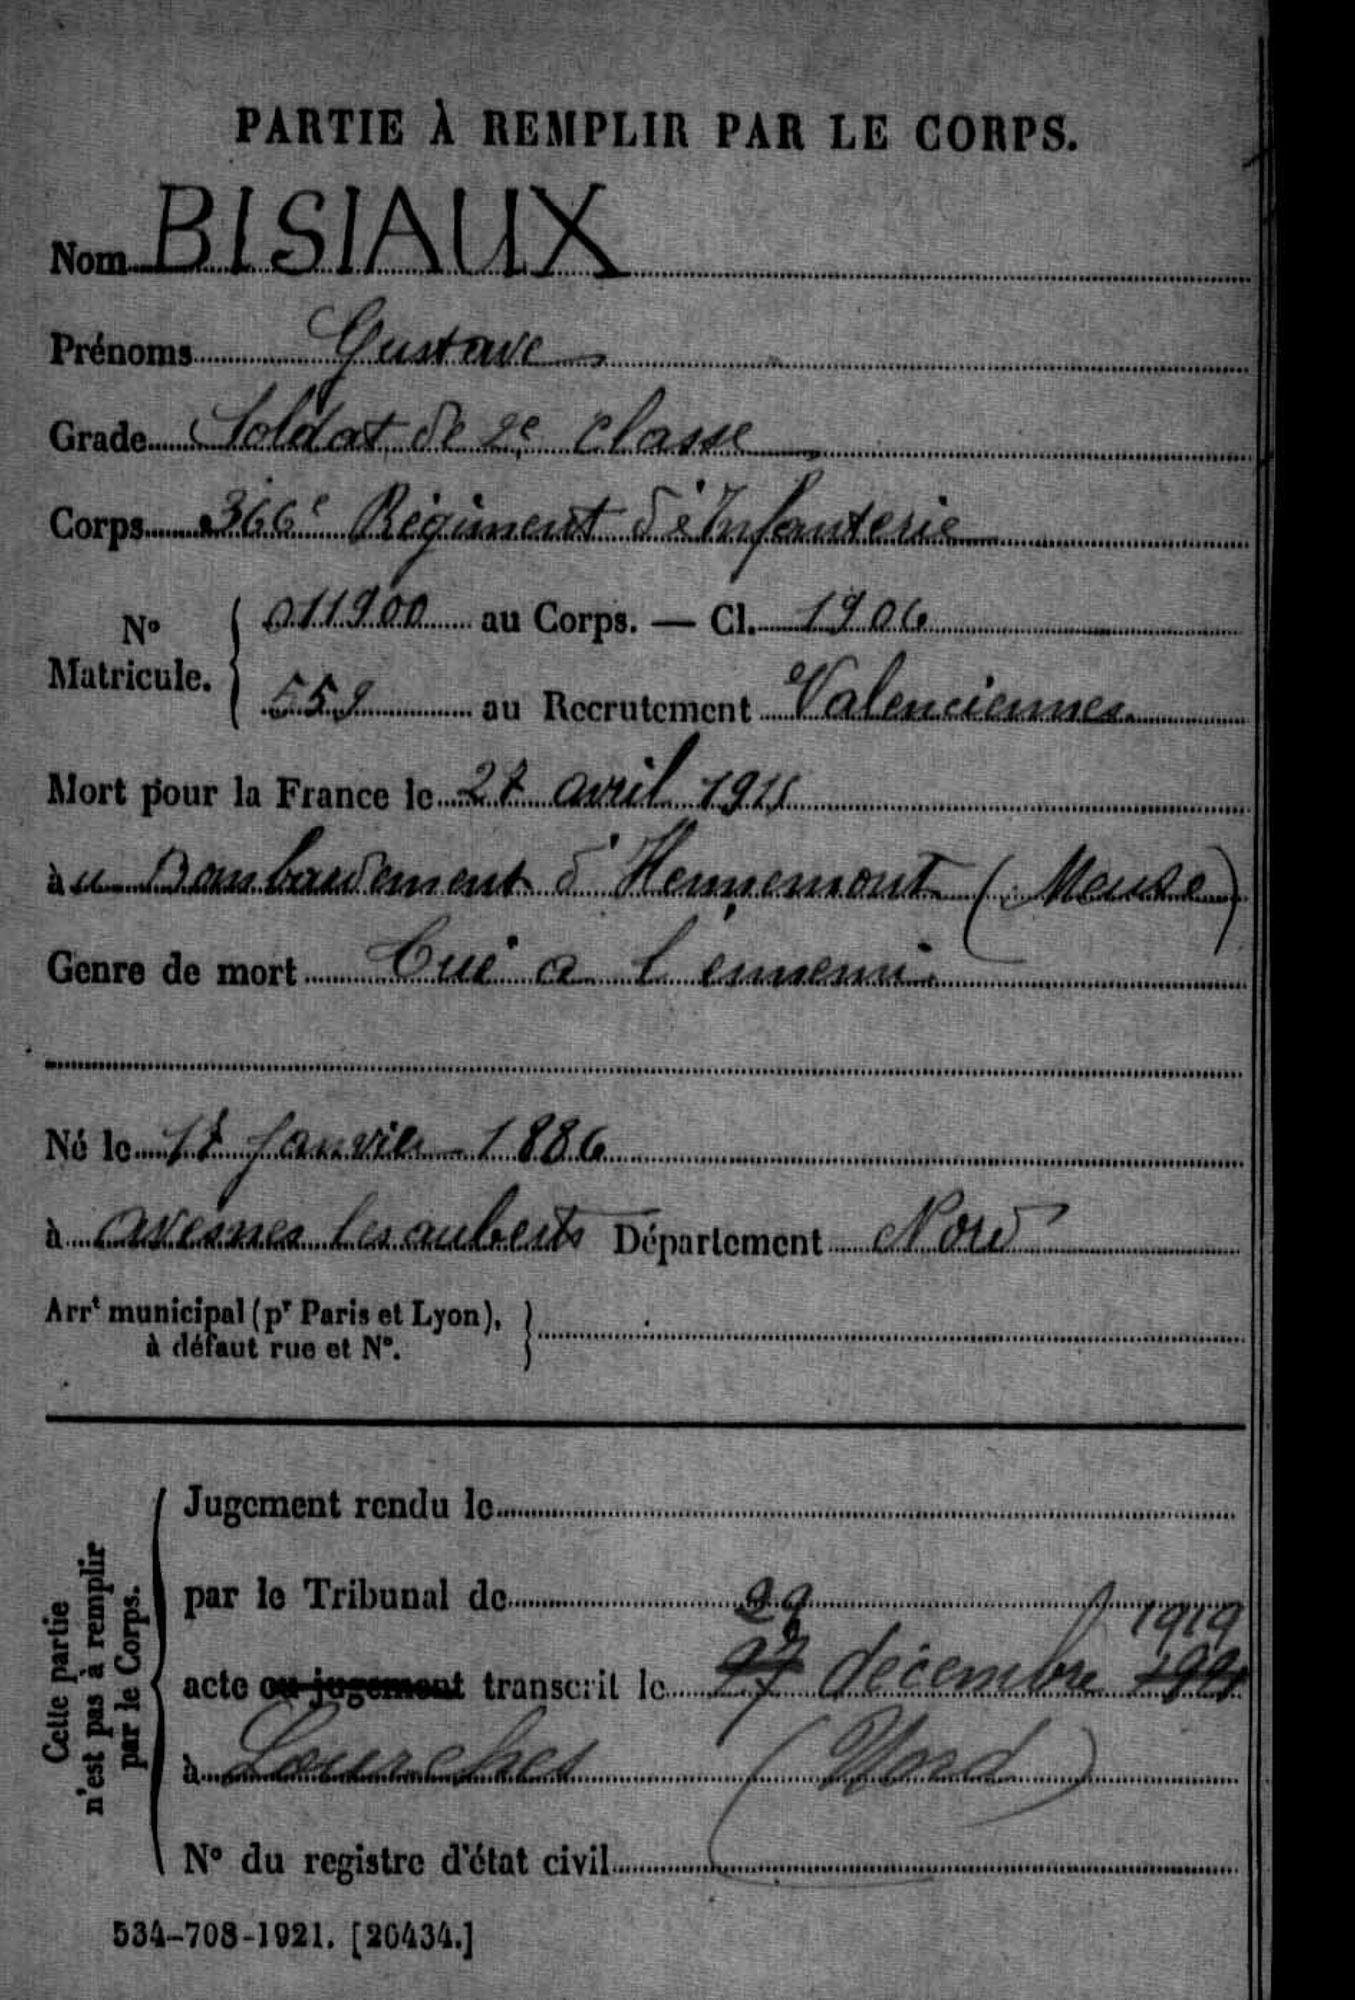 PARTIE À REMPLIR PAR LE CORPS.
Nom BISIAUX
Prénoms Gustave
Grade Soldat de 2e classe
Corps 366e Régiment d'Infanterie
N° Matricule. { 011900 au Corps. — Cl. 1906
559 au Recrutement Valenciennes
Mort pour la France le 27 avril 1915
à u Bombardement d'Hennemont (Meuse)
Genre de mort Tué a l'ennemi
Né le 17 Janvier 1886
à avesnes les auberts Département Nord
Arrt municipal (pr Paris et Lyon),
à défaut rue et N°. }
Cette partie
n'est pas à remplir
par le Corps.
Jugement rendu le
par le Tribunal de
29 1919
acte ou jugement transcrit le 27 décembre
à Lourches (Nord)
N° du registre d'état civil
534-708-1921. [26434.]